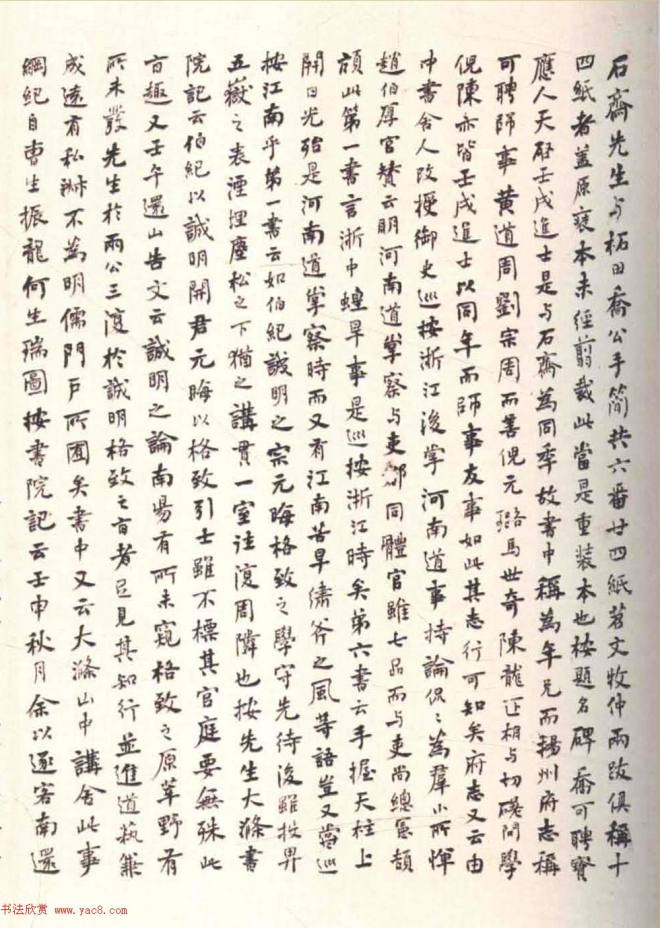 石齋先生与柘田喬公手簡共六番廿四紙茗文牧仲兩跋俱稱十
四紙者蓋原裝本未經剪裁此當是重裝本也按題名碑喬可聘寶
應人天啓壬戌進士是与石齋為同年故書中稱為年兄而揚州府志稱
可聘師事黄道周劉宗周而善倪元璐馬世奇陳龍正相与切磋問學
倪陳亦皆壬戌進士以同年而師事友事如此其志行可知矣府志又云由
中書舍人改授御史巡按浙江後掌河南道事持論侃〻為羣小所憚
趙伯厚官贊云明河南道掌察与吏部同體官雖七品而与吏尚總憲頡
頏此第一書言浙中蝗旱事是巡按浙江時矣第六書云手握天柱上
開日光殆是河南道掌察時而又有江南苦旱繡斧之風等語豈又嘗巡
按江南乎第一書云如伯紀誠明之宗元晦格致之學守先待後雖投畀
五嶽之表湮埋塵松之下猶之講貫一室往復周隣也按先生大滌書
院記云伯紀以誠明開君元晦以格致引士雖不標其官庭要無殊此
旨趣又壬午還山告文云誠明之論南陽有所未窺格致之原草野有
所未發先生於兩公三復於誠明格致之旨者足見其知行並進道執雖
成遠有私淋不為明儒門戶所囿矣書中又云大滌山中講舍此事
綱紀自曹生振龍何生瑞圖按書院記云壬申秋月余以逐客南還
书法欣赏 www.yac8.com